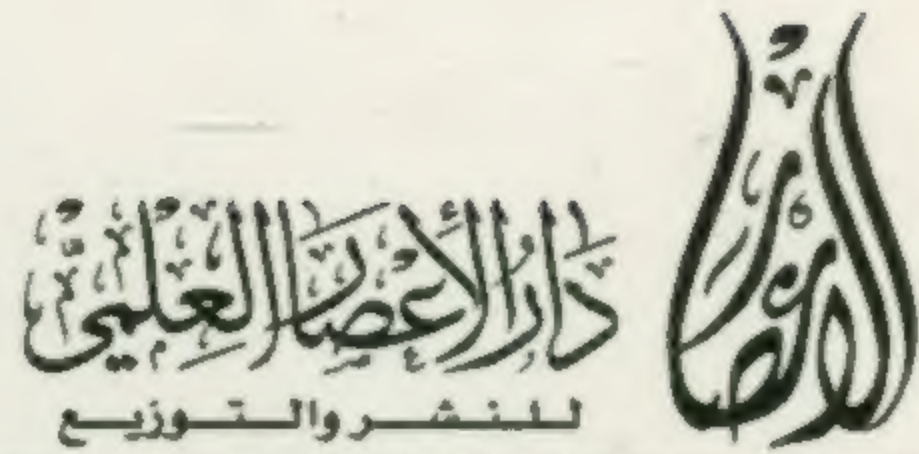 الإعصار
دَارُ الإِعْصَارِ العِلْمِيِّ
للنشر والتوزيع